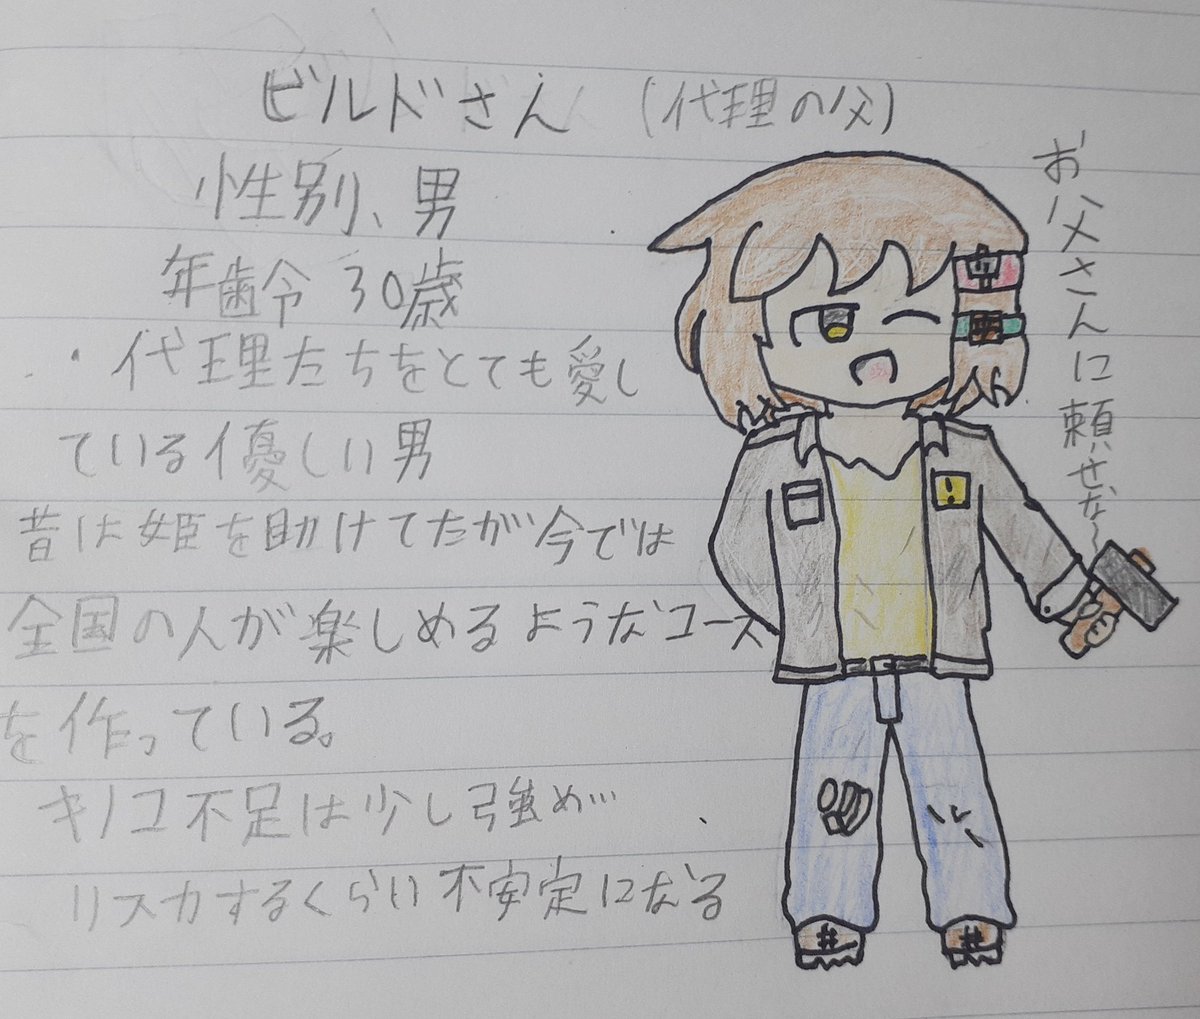 ビルドさん (代理の父)
性別、男
年齢 30歳
・代理たちをとても愛し
ている優しい男
昔は姫を助けてたが今では
全国の人が楽しめるようなコース
を作っている。
キノコ不足は少し強め…
リスカするくらい不安定になる
お父さんに頼せな〜